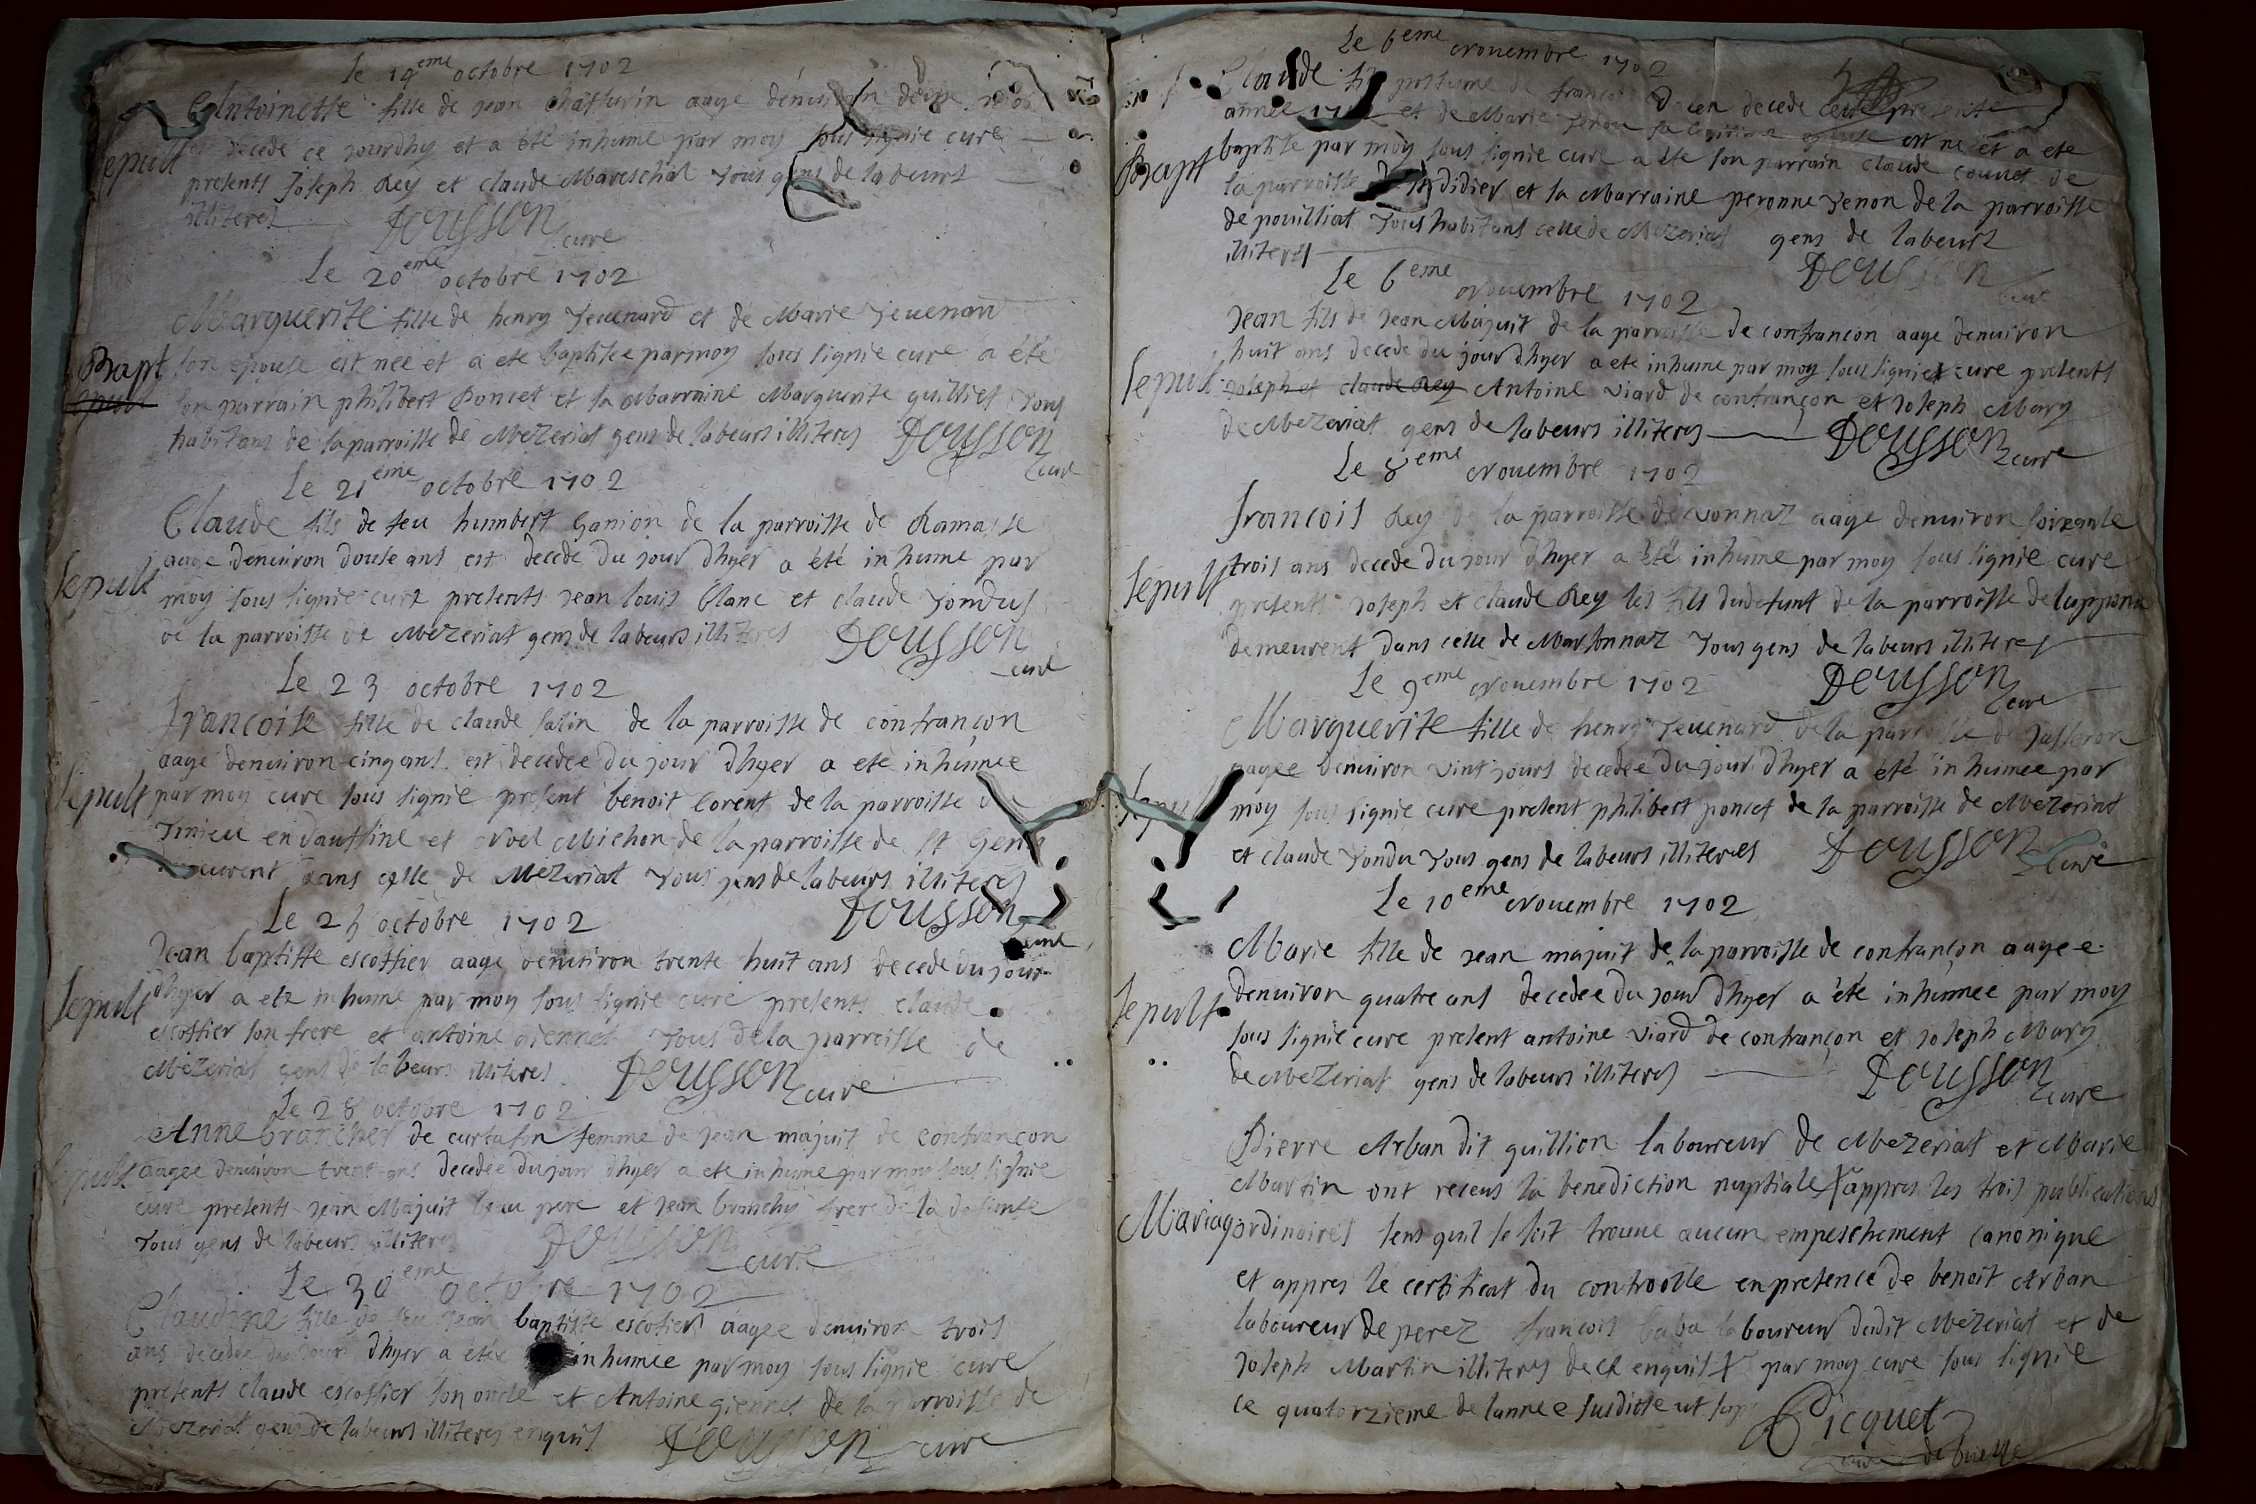 le 19eme octobre 1702
Antoinette fille de jean aage denuiron
decede ce jourdhy et a ete inhume par moy sous signie cure
Sepult
presents joseph Rey et claude Mareschal tous gens de labeurs
illiteres Dousson cure
Le 20eme octobre 1702
Marguerite fille de henry Teuenard et de Marie Teuenard
Bapt son epouse est nee et a ete baptisee par moy sous signie cure a été
sepult son parrain philibert Poncet et sa Marraine Marguerite guilliet tous
habitans de la parroisse de Mezeriat gens de labeurs illiteres Dousson
cure
Le 21eme octobre 1702
Claude fils de feu humbert Ganion de la parroisse de Ramasse
aage denuiron douse ans est decede du jour dhyer a été inhume par
Sepult moy sous signie cure presents jean louis blanc et claude Tondus
de la parroisse de Mezeriat gens de labeurs illiteres Dousson
cure
Le 23 octobre 1702
Francoise fille de claude salin de la parroisse de confrançon
aage denuiron cinq ans est decedee du jour dhyer a ete inhumee
Sepult par moy cure sous signie present benoit lorent de la parroisse de
en dauffine et Noel Michon de la parroisse de st Genis
dans celle de Mezeriat tous gens de labeurs illiteres
Dousson
cure
Le 24 octobre 1702
Jean baptiste escoffier aage denuiron trente huit ans decede du jour
Sepult dhyer a ete inhume par moy sous signie cure presents claude
escoffier son frere et antoine giennet tous de la parroisse de
Mezeriat gens de labeurs illiteres Dousson cure
Le 28 octobre 1702
Anne brancher de curtafon femme de jean majuit de confrancon
Sepult aagee denuiron trent ans decedee du jour dhyer a ete inhume par moy sous signie
cure presents jean Majuit beau pere et jean branchy frere de la defunte
Tous gens de labeurs illiteres Dousson cure
Le 30eme octobre 1702
Claudine fille de feu jean baptiste escofier aagee denuiron trois
ans decedee du jour dhyer a étée inhumee par moy sous signie cure
presents claude escoffier son oncle et Antoine giennet de la parroisse de
Mezeriat gens de labeurs illiteres enquis Dousson cure
Le 6eme Nouembre 1702
Claude fils postume de francois decede
annee et de Marie sa legitime epouse est né et a ete
Bapt baptise par moy sous signie cure a ete son parrain claude couuet de
la parroisse de st didier et sa Marraine peronne Tenon de la parroisse
de pouilliat Tous habitans celle de Mezeriat gens de labeurs
illiteres Dousson
cure
Le 6eme Nouembre 1702
Jean fils de jean Majuit de la parroisse de confrancon aage denuiron
huit ans decede du jour dhyer a ete inhume par moy sous signie cure presents
Sepult joseph et claude Rey Antoine Viard de confrançon et joseph Mary
de Mezeriat gens de labeurs illiteres Dousson
cure
Le 8eme Nouembre 1702
Francois Rey de la parroisse de vonnaz aage denuiron soixante
Sepult trois ans decede du jour dhyer a été inhume par moy sous signie cure
presents joseph et claude Rey les fils dudefunt de la parroisse de
demeurent dans celle de Marsonnaz Tous gens de labeurs illiteres
Dousson
cure
Le 9eme Nouembre 1702
Marguerite fille de henry Teuenard de la parroisse de jasseron
aagee denuiron vint jours decedee du jour dhyer a été inhumee par
Sepult moy sous signie cure present philibert poncet de la parroisse de Mezeriat
et claude Tondu Tous gens de labeurs illiteres Dousson
cure
Le 10eme Nouembre 1702
Marie fille de jean majuit de la parroisse de confrançon aagee
Sepult denuiron quatre ans decedee du jour dhyer a été inhumee par moy
sous signie cure present antoine Viard de confrançon et joseph Mary
de Mezeriat gens de labeurs illiteres Dousson
cure
Pierre Arban dit guillion laboureur de Mezeriat et Marie
Martin ont receus la benediction nuptiale appres les trois publications
Mariag ordinaires sens quil se soit trouue aucun empeschement canonique
et appres le certificat du controolle en presence de benoit Arban
laboureur de perez francois baba laboureur dudit Mézeriat et de
joseph Martin illiteres de ce enquis par moy cure sous signie
ce quatorzieme de lannee susditte ut sup
Picquet
cure de